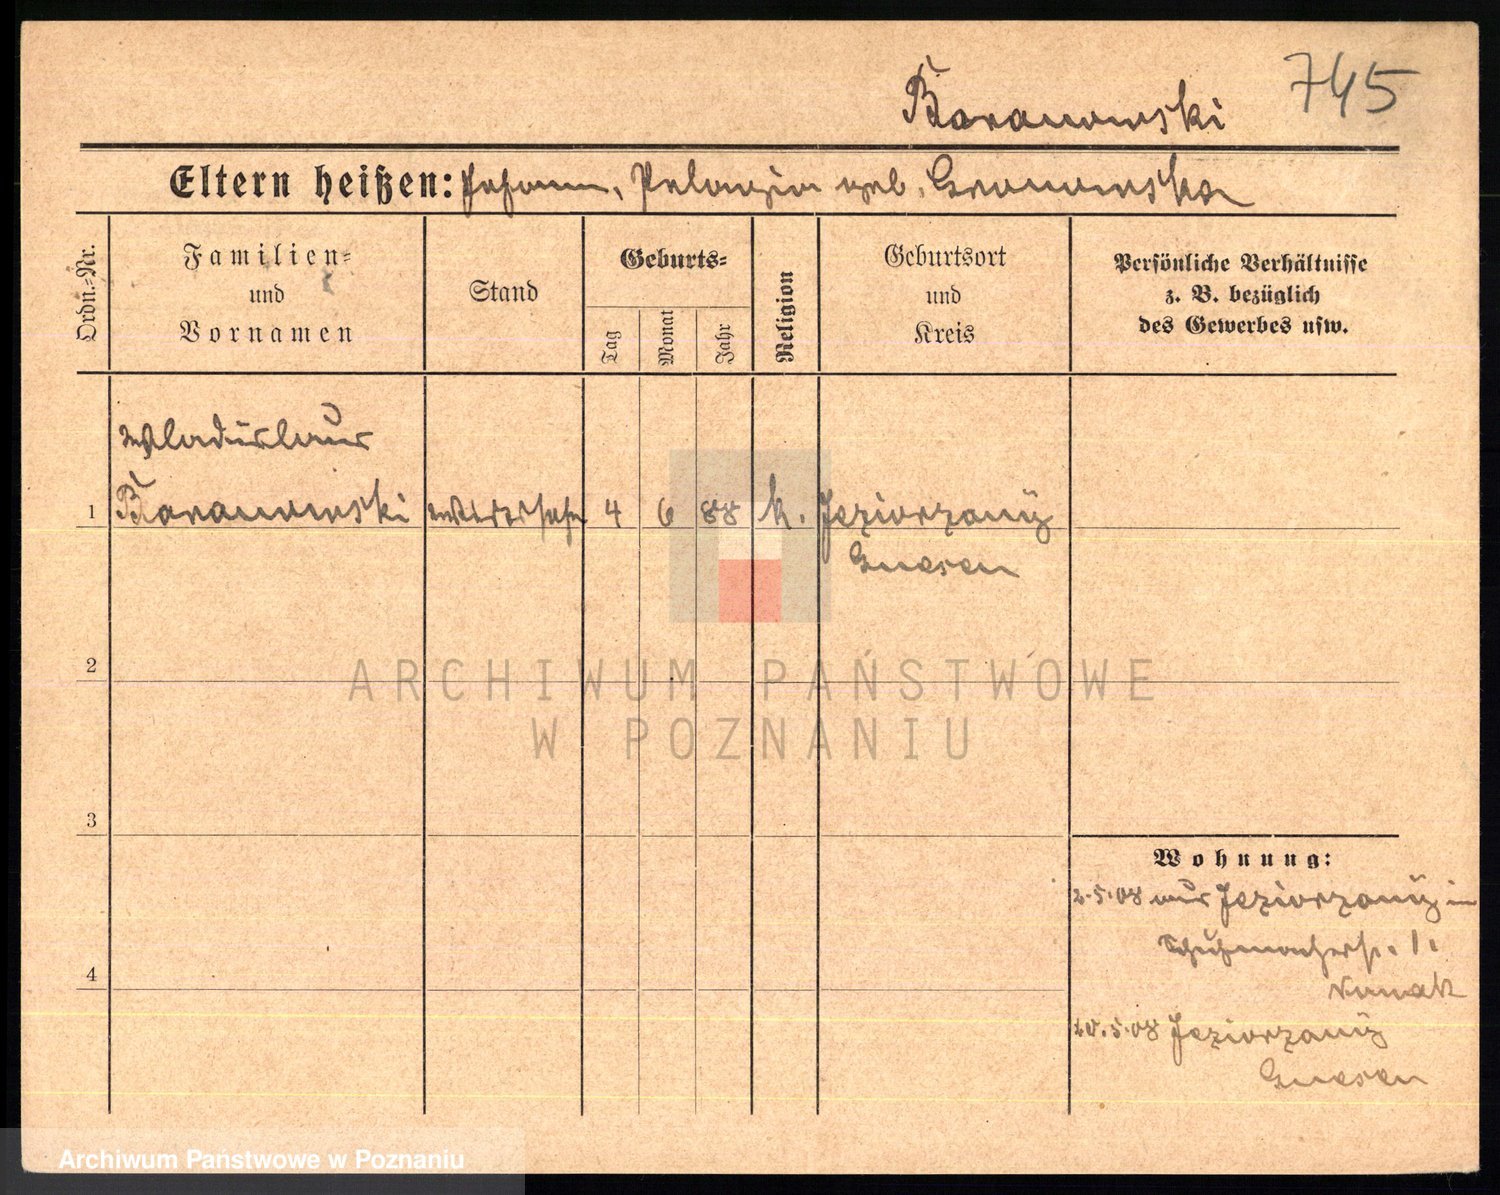 745
Baranowski
Eltern heißen: Johann, Pelagia geb. Gronowska
Ordn.-Nr.
Familien-
und
Vornamen
Stand
Geburts-
Tag
Monat
Jahr
Religion
Geburtsort
und
Kreis
Persönliche Verhältnisse
z. B. bezüglich
des Gewerbes usw.
Wladislaus
1 Baranowski Wirtssohn 4 6 88 k. Jeziorzany
Gnesen
2
ARCHIWUM PAŃSTWOWE
W POZNANIU
3
Wohnung:
2.5.08 aus Jeziorzany in
Schuhmacherstr. 1.
Nowak
5.08 Jeziorzany
4
Gnesen
Archiwum Państwowe w Poznaniu